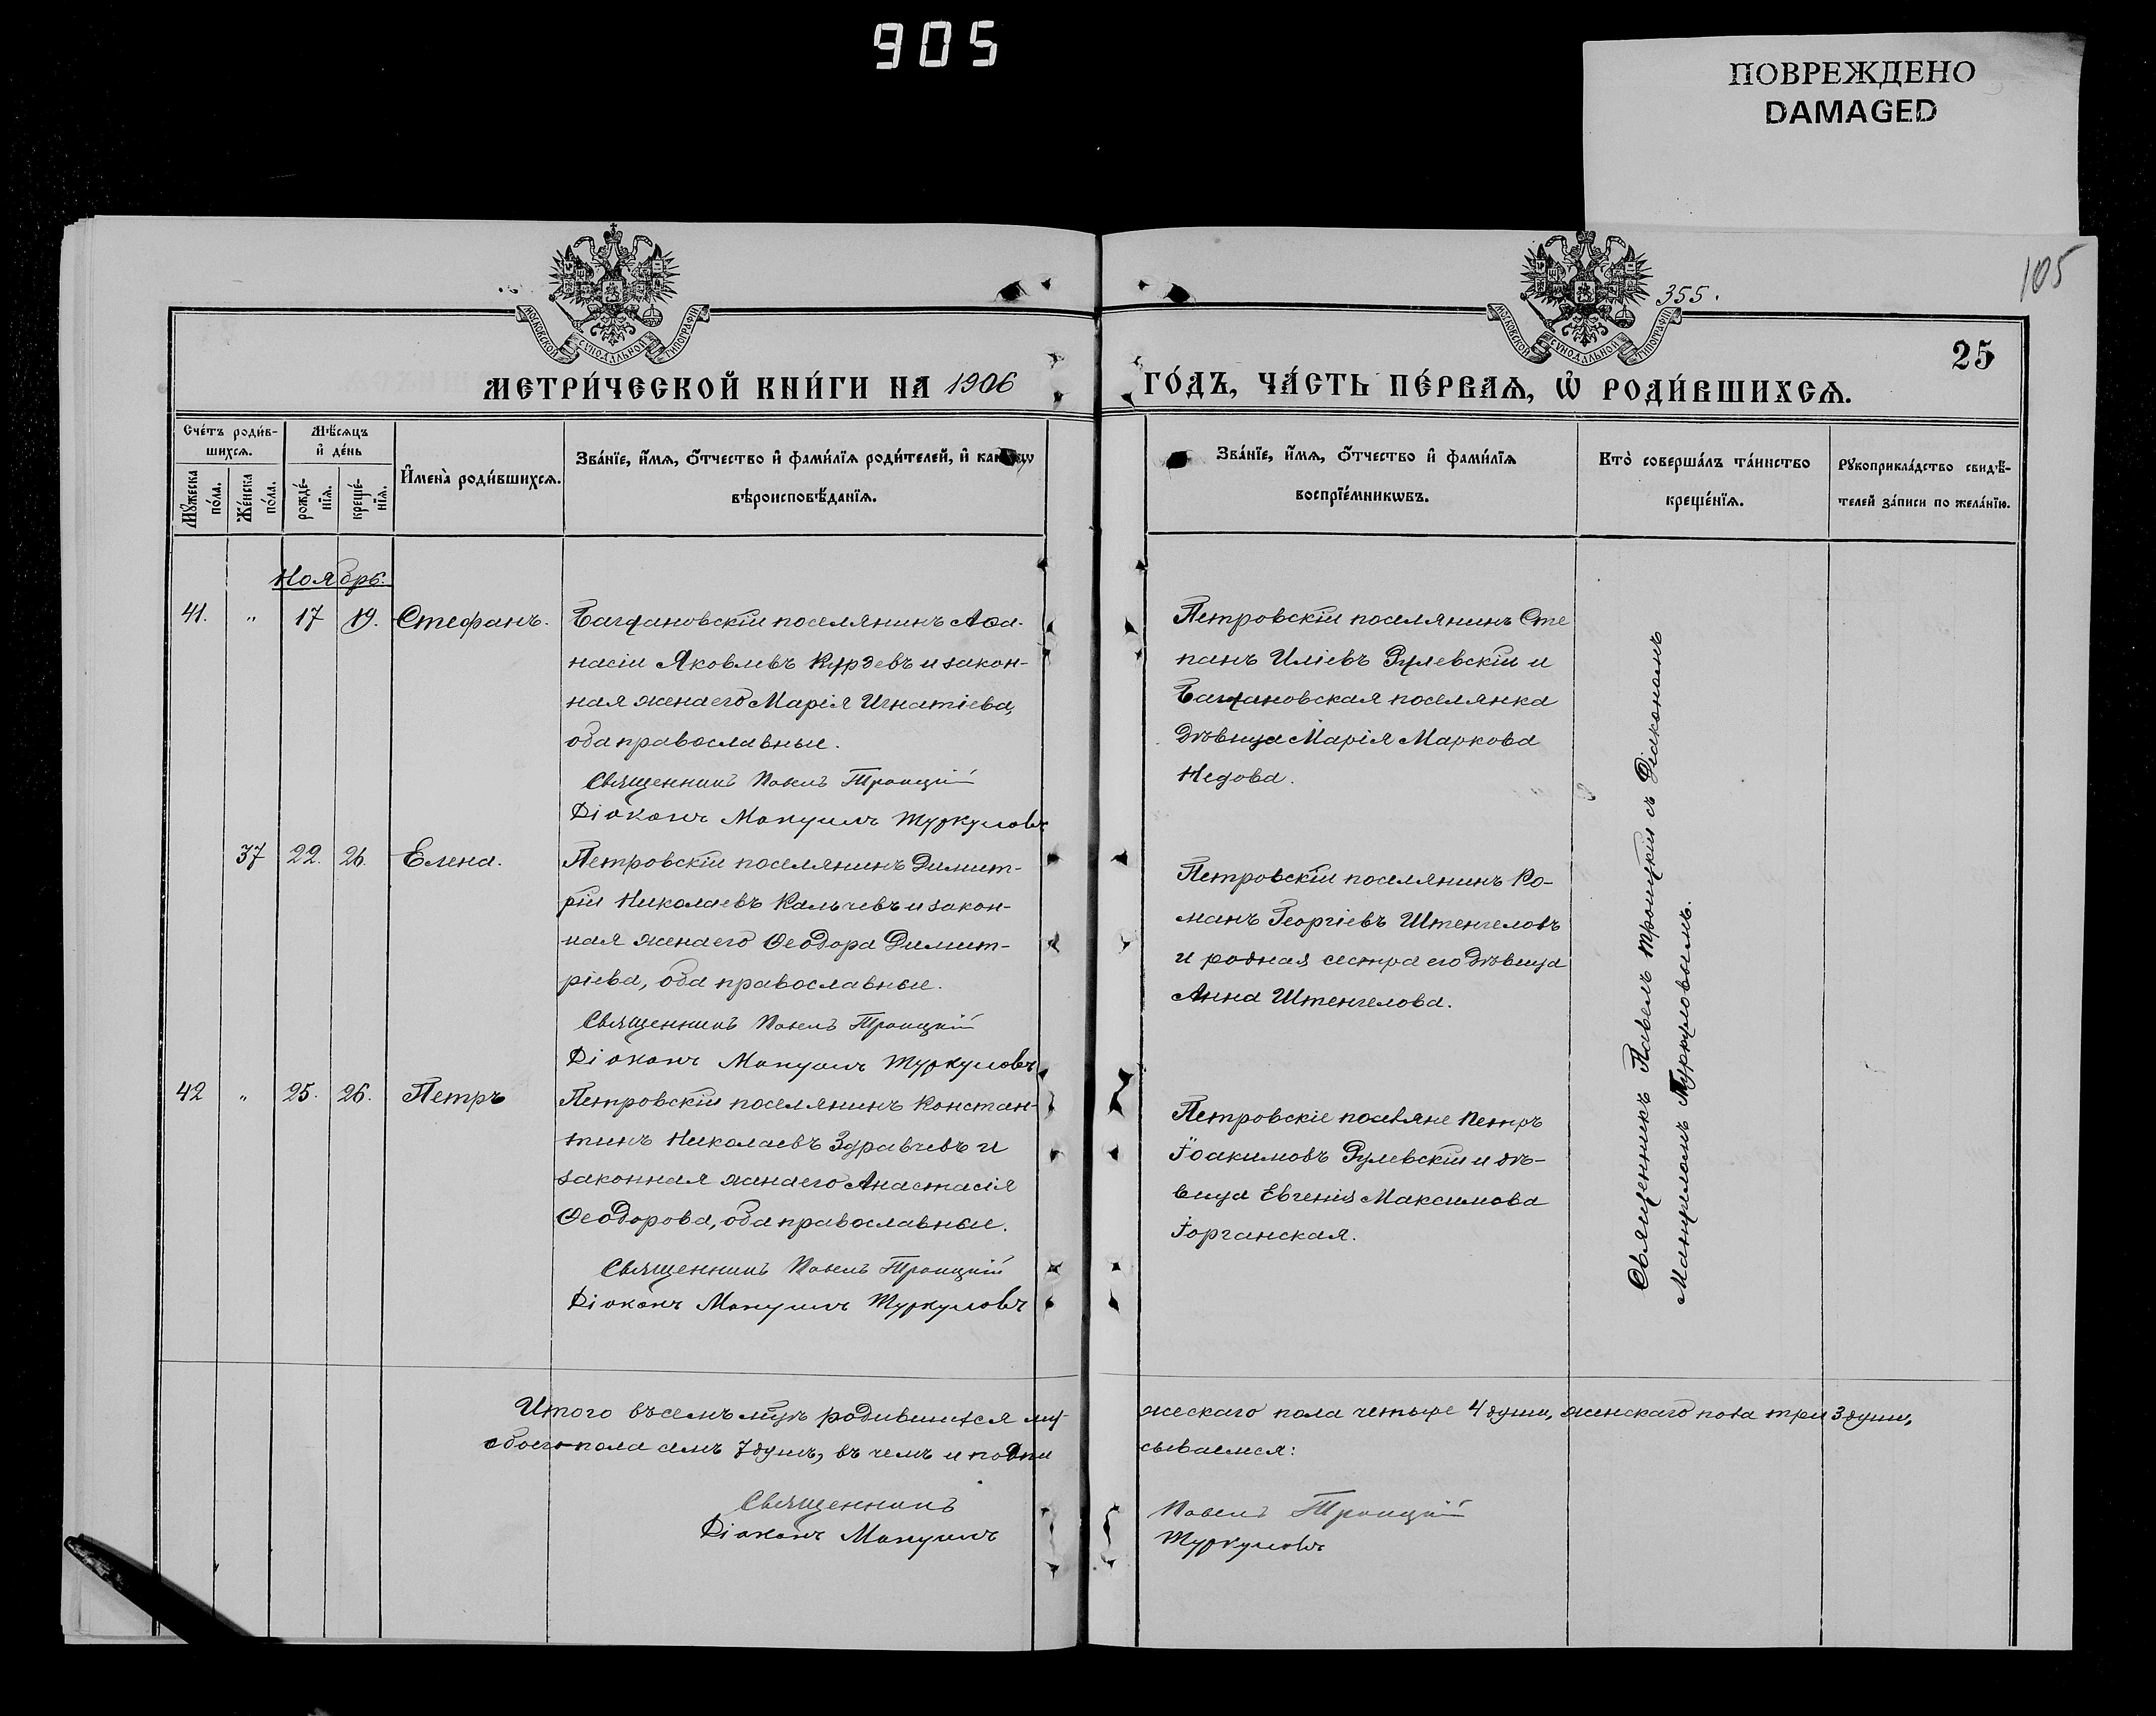 905
ПОВРЕЖДЕНО
DAMAGED
105
355.
25
МОСКОВСКОЙ СѴНОДАЛЬНОЙ ТИПОГРАФІИ
МОСКОВСКОЙ СѴНОДАЛЬНОЙ ТИПОГРАФІИ
МЕТРИ́ЧЕСКОЙ КНИ́ГИ НА 1906
ГО́ДЪ, ЧА́СТЬ ПЕ́РВАЯ, Ѡ҆ РОДИ́ВШИХСЯ.
Сче́тъ роди́в-
шихся.
Мꙋ́жеска по́ла.
Же́нска по́ла.
Мѣ́сяцъ
и҆ де́нь
рожде́-
нїя.
креще́-
нїя.
И҆мена̀ роди́вшихся.
Зва́нїе, и҆́мя, ѻ҆́тчество и҆ фами́лїя роди́телей, и҆ како́гѡ
вѣроисповѣ́данїя.
Зва́нїе, и҆́мя, ѻ҆́тчество и҆ фами́лїя
воспрїе́мникѡвъ.
Кто̀ соверша́лъ та́инство
креще́нїя.
Рꙋкоприкла́дство свидѣ́-
телей за́писи по жела́нїю.
Ноябрь.
41. " 17 19. Стефанъ.
Багдановскій поселянинъ Аѳа-
насій Яковлевъ Курдевъ и закон-
ная жена его Марія Игнатіева,
оба православные.
Священникъ Павелъ Троицкій
Діаконъ Мануилъ Туркуловъ
Петровскій поселянинъ Сте
панъ Иліевъ Рулевскій и
Багдановская поселянка
дѣвица Марія Маркова
Недова.
37 22. 26. Елена.
Петровскій поселянинъ Димит-
рій Николаевъ Кальчевъ и закон-
ная жена его Ѳеодора Димит-
ріева, оба православные.
Священникъ Павелъ Троицкій
Діаконъ Мануилъ Туркуловъ
Петровскій поселянинъ Ро-
манъ Георгіевъ Штенгеловъ
и родная сестра его дѣвица
Анна Штенгелова.
42 " 25. 26. Петръ
Петровскій поселянинъ Констан-
тинъ Николаевъ Здравчевъ и
законная жена его Анастасія
Ѳеодорова, оба православные.
Священникъ Павелъ Троицкій
Діаконъ Мануилъ Туркуловъ
Петровскіе поселяне Петръ
Іоакимовъ Рулевскій и дѣ-
вица Евгенія Максимова
Іорганская.
Священникъ Павелъ Троицкій съ Діакономъ
Мануиломъ Туркуловымъ.
Итого въ семъ м-цѣ родившихся му-
жескаго пола четыре 4 души, женскаго пола три 3 души,
обоего пола семь 7 душъ, въ чемъ и подпи
сываемся:
Священникъ Павелъ Троицкій
Діаконъ Мануилъ Туркуловъ